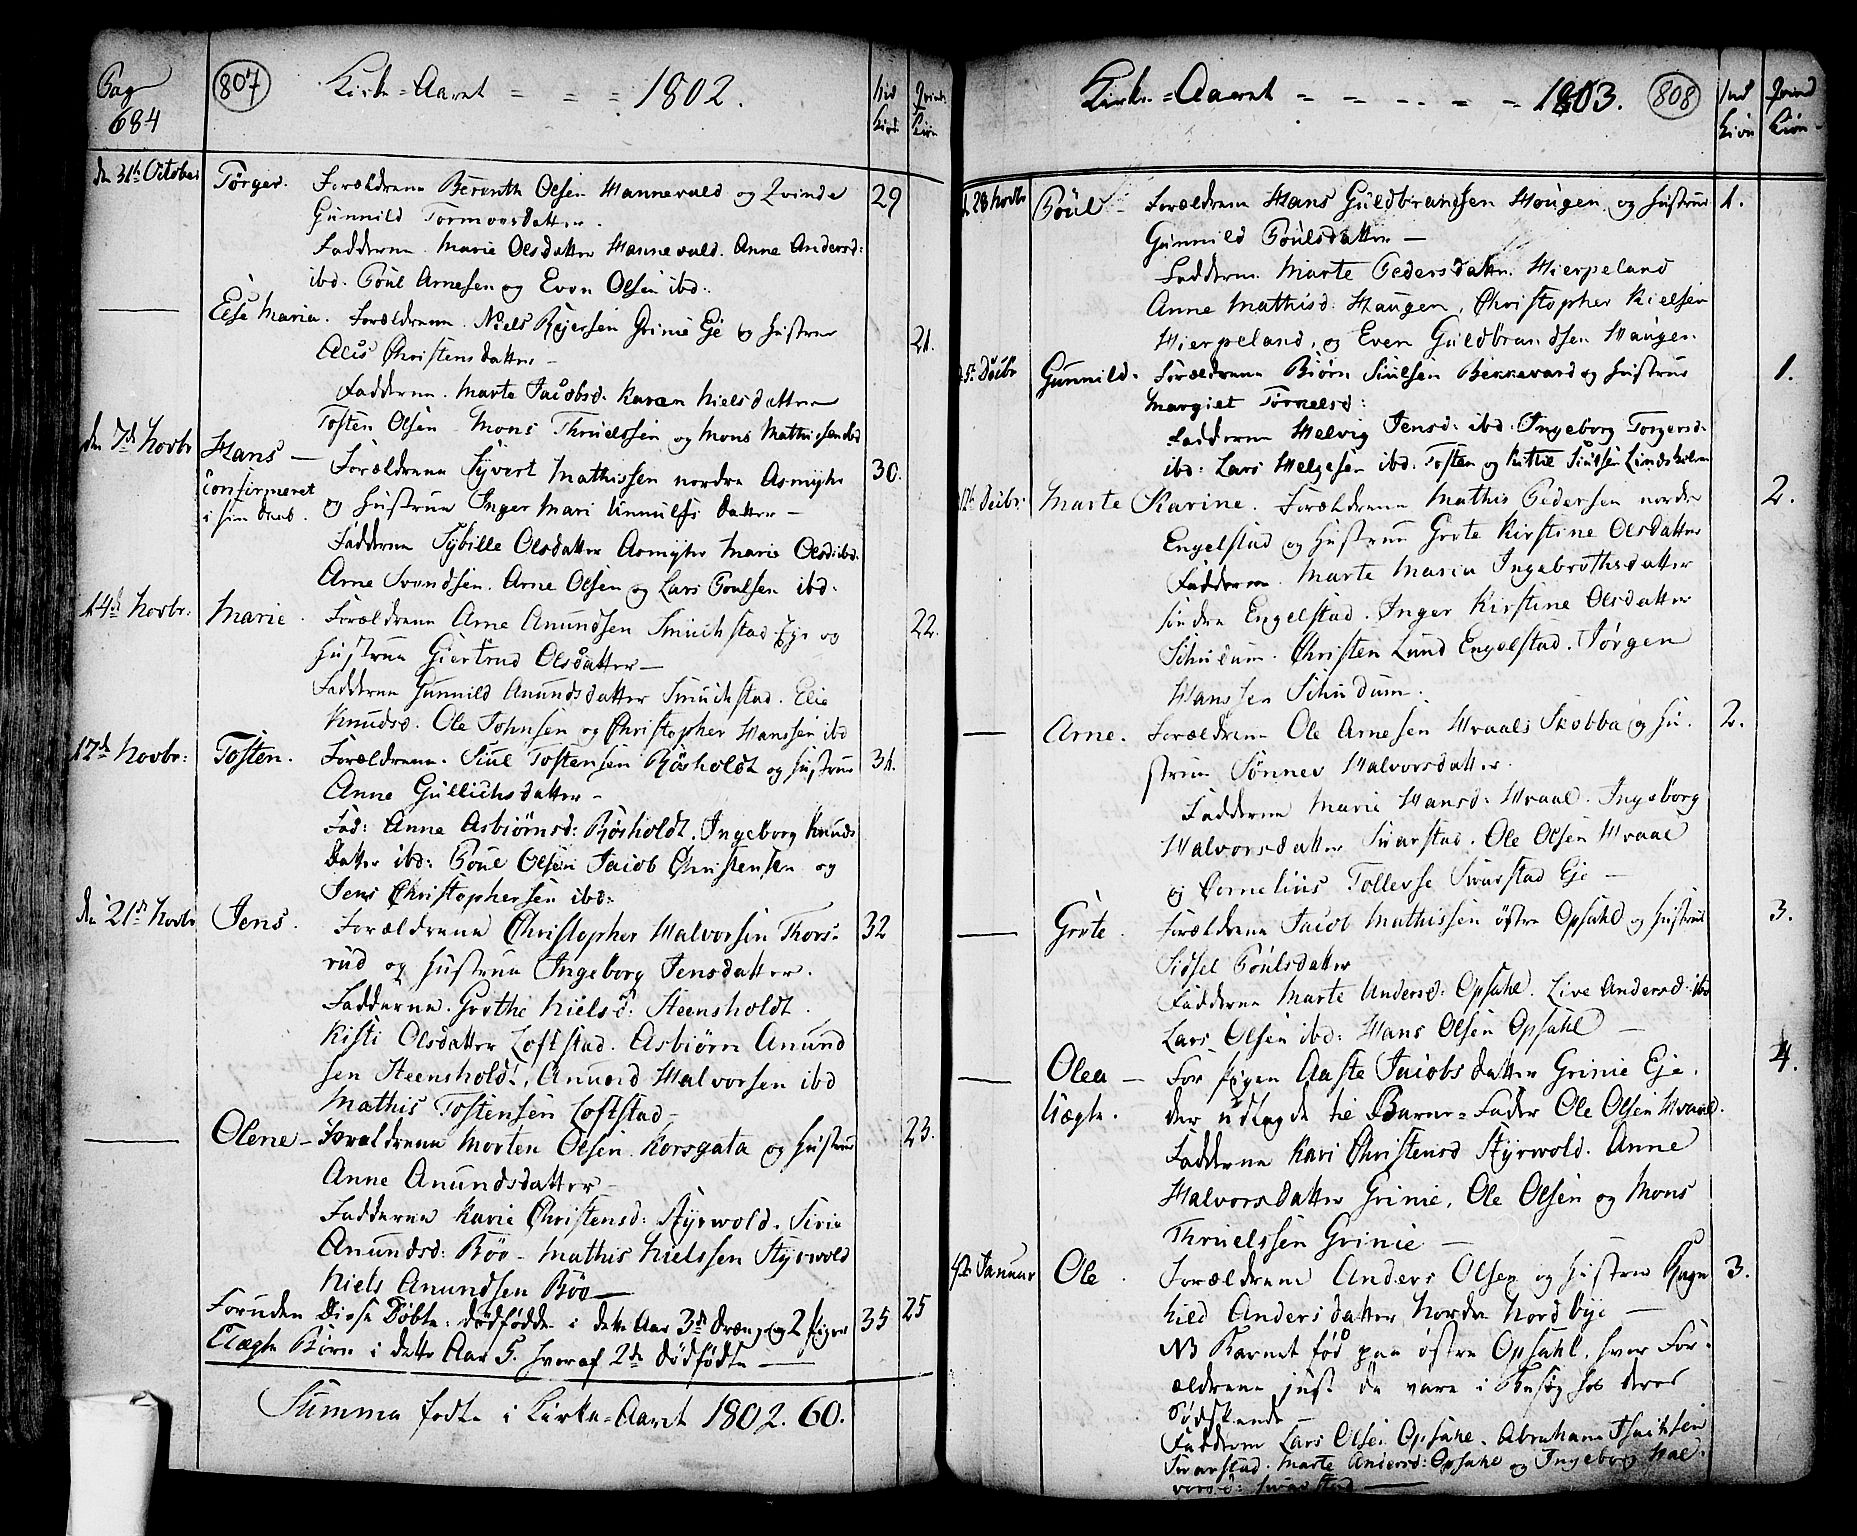 Pag
684
807
Kirke=Aaret = = = 1802.
Kiøn
Qvind
Kiøn
den 31te October
Tørger. Forældrene Berenth Olsen Hannevald og Qvinde
29
Gunnild Tormoersdatter.
Fadderne. Marie Olsdatter Hannevald. Anne Andersd:
ibd. Poul Arnesen og Even Olsen ibd:
Else Maria. Forældrene. Niels Rejersen Grinie Eje og Hustrue
21.
Alis Christensdatter –
Fadderne. Marte Jacobsd. Karen Nielsdatter
Tosten Olsen Mons Thruelssen og Mons Mathissen ibd
den 7de Novbr
Hans – Forældrene Syvert Mathissen nordre Asmyhr
30.
Confirmeret
i sin Daab.
og Hustrue Inger Mari Unnulfs datter –
Fadderne Sybille Olsdatter Asmyhr Marie Olsd ibd.
Arne Svendsen. Arne Olsen og Lars Poulsen ibd.
14de Novbr:
Marie. Forældrene Arne Anundsen Smuchstad Eje og
22.
Hustrue Giertrud Olsdatter –
Fadderne Gunnild Anundsdatter Smuchstad. Elie
Knudsd. Ole Johnsen og Christopher Hanssen ibd
17de Novbr:
Tosten. Forældrene. Siul Tostensen Røsholdt og Hustrue
31.
Anne Gullichsdatter –
Fad: Anne Asbiørnsd: Røsholdt. Ingeborg Knuds
datter ibd: Poul Olsen Jacob Christensen og
Jens Christophersen ibd:
den 21de Novbr
Jens. Forældrene Christopher Halvorsen Thors-
32
rud og Hustrue Ingeborg Jensdatter.
Fadderne. Grethe Nielsd: Steensholdt.
Kisti Olsdatter Loftstad. Asbiørn Anund
sen Steensholdt. Anund Halvorsen ibd
Mathis Tostensen Loftstad –
Olene – Forældrene Morten Olsen Korsgata og Hustrue
23.
Anne Anundsdatter –
Fadderne Karie Christensd: Styrwold. Sirie
Anundsd: Bøe – Mathis Nielssen Styrwold
Niels Anundsen Bøe –
Foruden disse Døbte: dødfødde i dette Aar 3de Drænge og 2 Piger
35
25
Uægte Børn i dette Aar 5. hvoraf 2de dødfødte –
Summa fødte i Kirke=Aaret 1802. 60.
Kirke=Aaret – – – – – 1803.
808
Kiøn
Qvind
Kiøn
d. 28 Novbr
Poul – Forældrene Hans Guldbrandsen Hougen og Hustrue
1.
Gunnild Poulsdatter –
Fadderne. Marte Pedersdatter. Hierpeland
Anne Mathisd: Haugen, Christopher Nielsen
Hierpeland, og Even Guldbrandsen Haugen.
5te Decbr
Gunnild. Forældrene Biørn Siulsen Bekkevard og Hustrue
1.
Margiet Tornelsd:
Fadderne Helvig Jensd: ibd. Ingeborg Torgersd.
ibd: Lars Helgesen ibd. Tosten og Kittil Siulsen Lindsholm
12te Decbr:
Marte Karine. Forældrene Mathis Pedersen nordre
2.
Engelstad og Hustrue Grete Kirstine Olsdatter
Fadderne. Marte Maria Ingebrethsdatter
søndre Engelstad. Inger Kirstine Olsdatter
Schudum. Christen Lund Engelstad. Jørgen
Hanssen Schudum.
Arne. Forældrene Ole Arnesen Hvaals Skobba og Hu-
2.
strue Sønnev Halvorsdatter.
Fadderne Marie Hansd: Hvaal. Ingeborg
Halvorsdatter Svarstad. Ole Olsen Hvaal
og Cornelius Tollevse Svarstad Eje –
Grete. Forældrene Jacob Mathissen østre Opsahl og Hustrue
3.
Sidsel Poulsdatter
Fadderne Marte Andersd: Opsahl. Live Andersd: ibd
Lars Olsen ibd: Hans Olsen Opsahl –
Olea – For Pigen Aaste Jacobsdatter Grinie Eje.
4.
Uægte. der udlagde til Barne=Fader Ole Olsen Hvaal.
Fadderne Kari Christensd Styrwold. Anne
Halvorsdatter Grinie. Ole Olsen og Mons
Thruelssen Grinie –
Januar
Ole. Forældrene Anders Olsen og Hustrue Ragn
3.
hild Andersdatter Nordre Nordbye –
NB Barnet fød paa østre Opsahl, hvor For-
ældrene just da vare i Besøg hos deres
Sødskende
Fadderne Lars Olsen Opsahl. Abraham Isachsen
Svarstad. Marte Andersd: Opsahl og Ingeborg Hal-
vorsd: Svarstad –